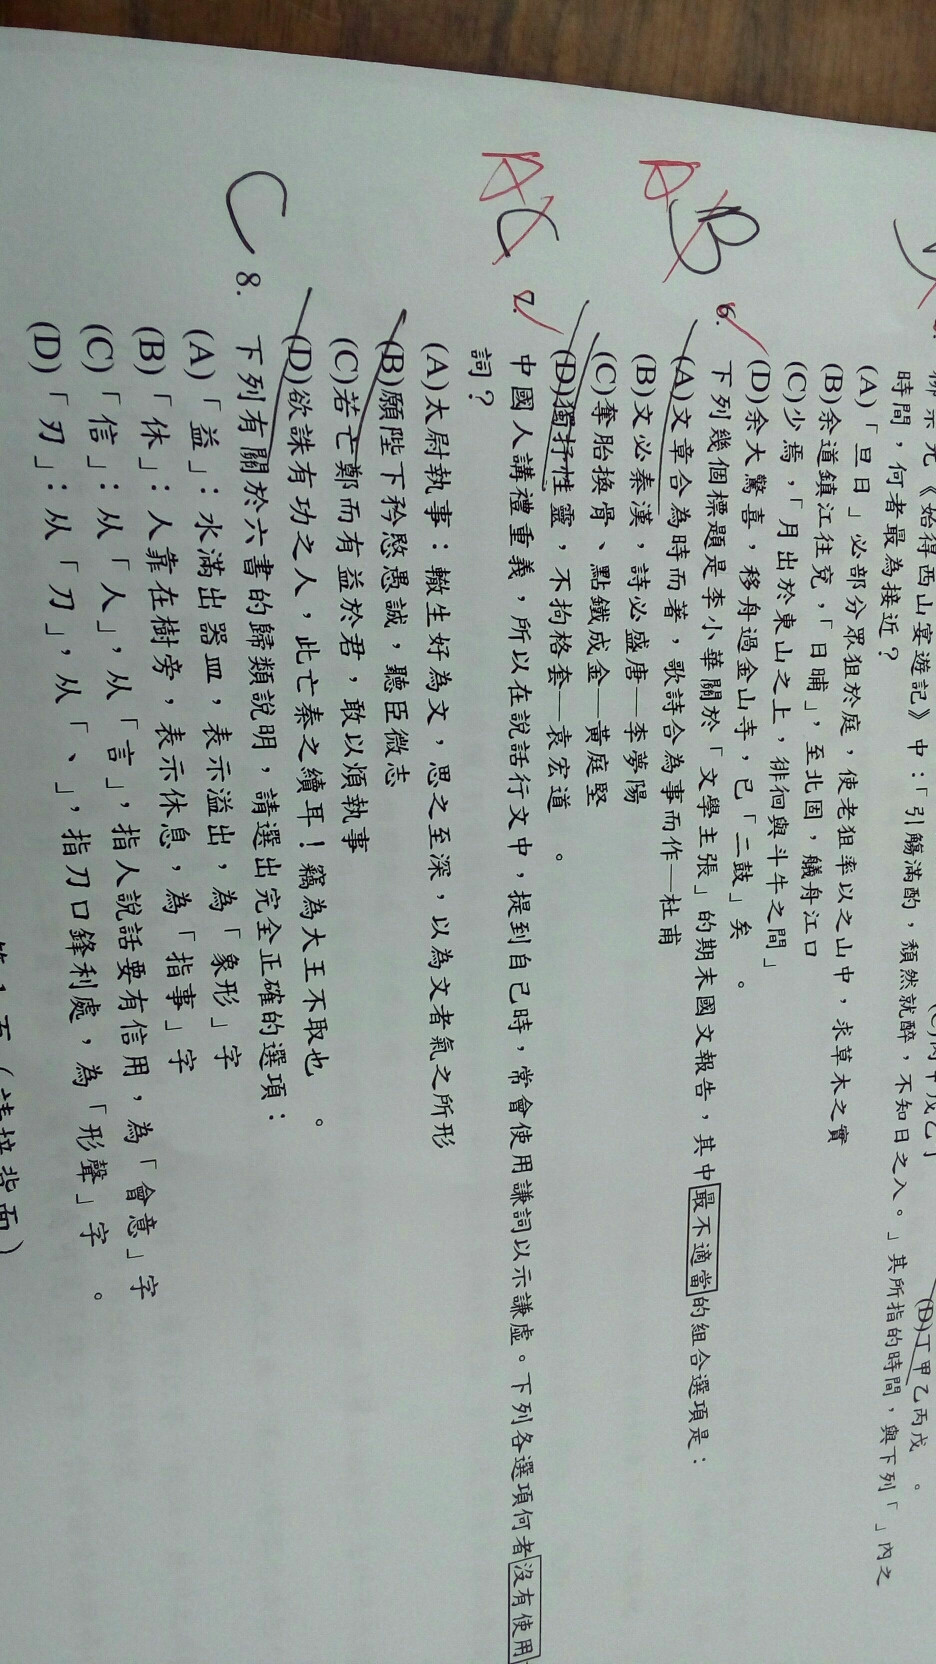 (C)丙甲戊乙丁 (D)丁甲乙丙戊 。
柳宗元《始得西山宴遊記》中:「引觴滿酌,頹然就醉,不知日之入。」其所指的時間,與下列「 」內之
時間,何者最為接近?
(A)「旦日」必部分眾狙於庭,使老狙率以之山中,求草木之實
(B)余道鎮江往兗,「日晡」,至北固,艤舟江口
(C)少焉,「月出於東山之上,徘徊與斗牛之間」
(D)余大驚喜,移舟過金山寺,已「二鼓」矣 。
A B 6. 下列幾個標題是李小華關於「文學主張」的期末國文報告,其中最不適當的組合選項是:
(A)文章合為時而著,歌詩合為事而作—杜甫
(B)文必秦漢,詩必盛唐—李夢陽
(C)奪胎換骨、點鐵成金—黃庭堅
(D)獨抒性靈,不拘格套—袁宏道 。
A C 7. 中國人講禮重義,所以在說話行文中,提到自己時,常會使用謙詞以示謙虛。下列各選項何者沒有使用
詞?
(A)太尉執事:轍生好為文,思之至深,以為文者氣之所形
(B)願陛下矜愍愚誠,聽臣微志
(C)若亡鄭而有益於君,敢以煩執事
(D)欲誅有功之人,此亡秦之續耳!竊為大王不取也 。
C 8. 下列有關於六書的歸類說明,請選出完全正確的選項:
(A)「益」:水滿出器皿,表示溢出,為「象形」字
(B)「休」:人靠在樹旁,表示休息,為「指事」字
(C)「信」:从「人」,从「言」,指人說話要有信用,為「會意」字
(D)「刃」:从「刀」,从「、」,指刀口鋒利處,為「形聲」字 。
第 1 頁(請接背面)